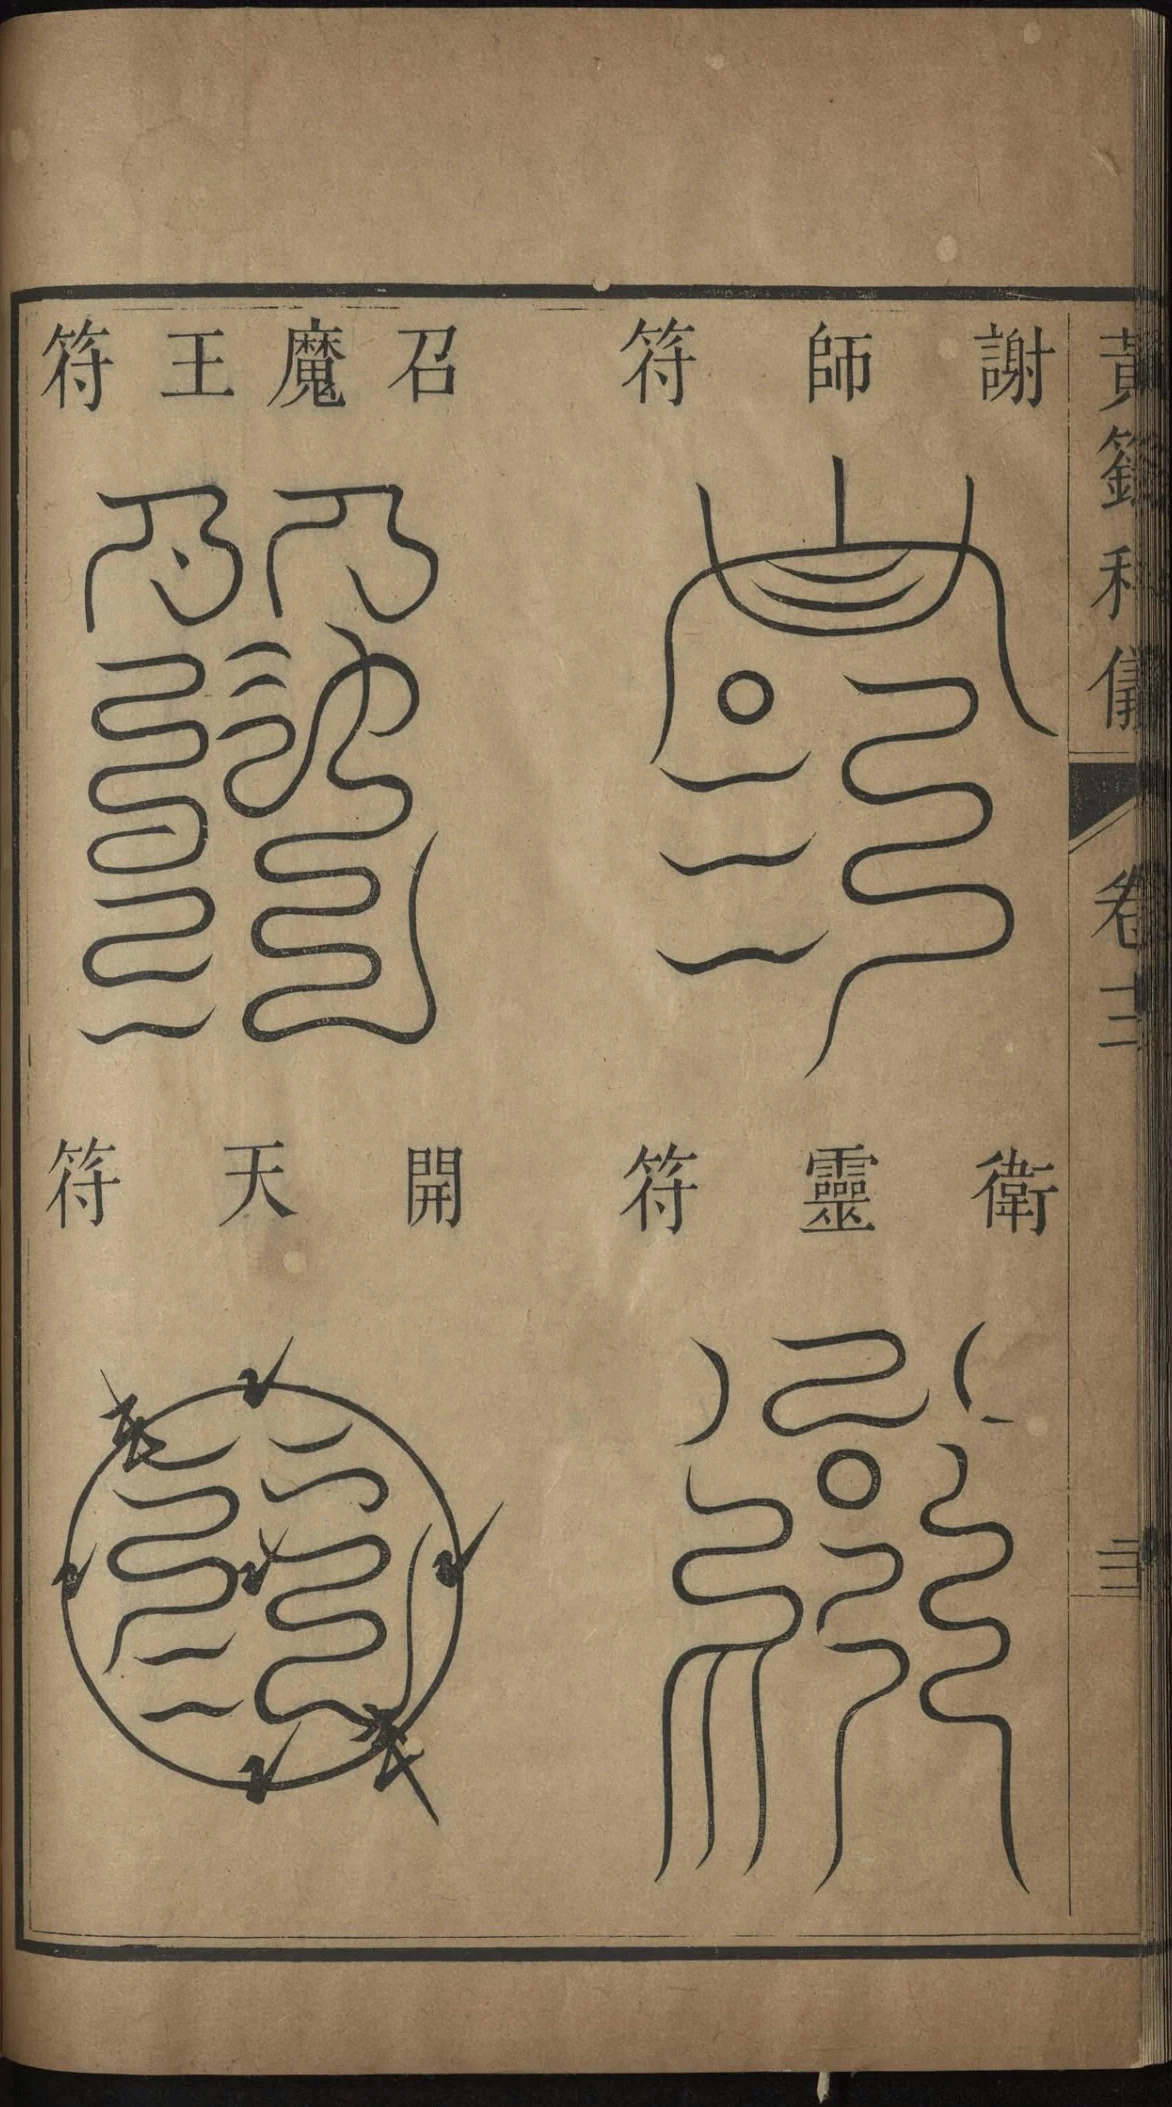 黃籙科儀
卷十二
謝師符
召魔王符
衛靈符
開天符